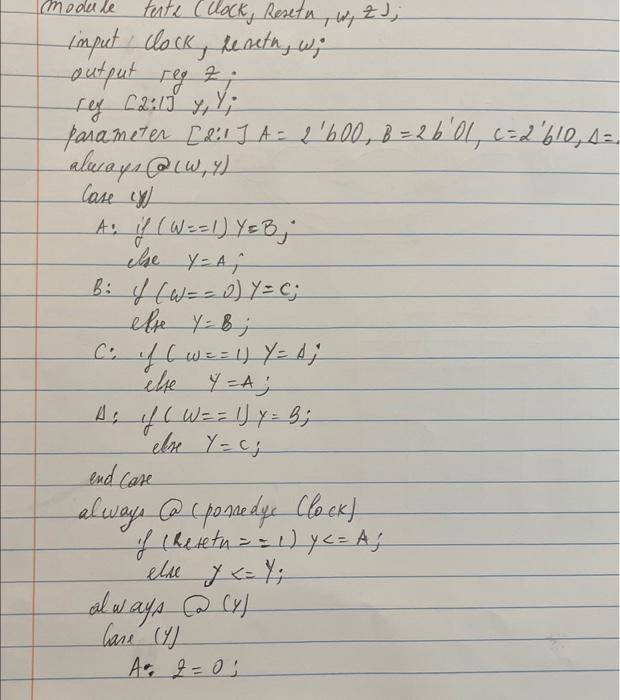 module teste (Clock, Resetn, w, z);
input Clock, Resetn, w;
output reg z;
reg [2:1] y, Y;
parameter [2:1] A = 2'b00, B = 2b'01, C = 2'b10, D =
always @ (w, y)
Case (y)
A: if (w==1) Y=B;
else Y=A;
B: if (w==0) Y=C;
else Y=B;
C: if (w==1) Y=D;
else Y=A;
D: if (w==1) Y=B;
else Y=C;
end case
always @ (posnedge Clock)
if (Resetn == 1) y<=A;
else y<=Y;
always @ (y)
Case (y)
A: z=0;